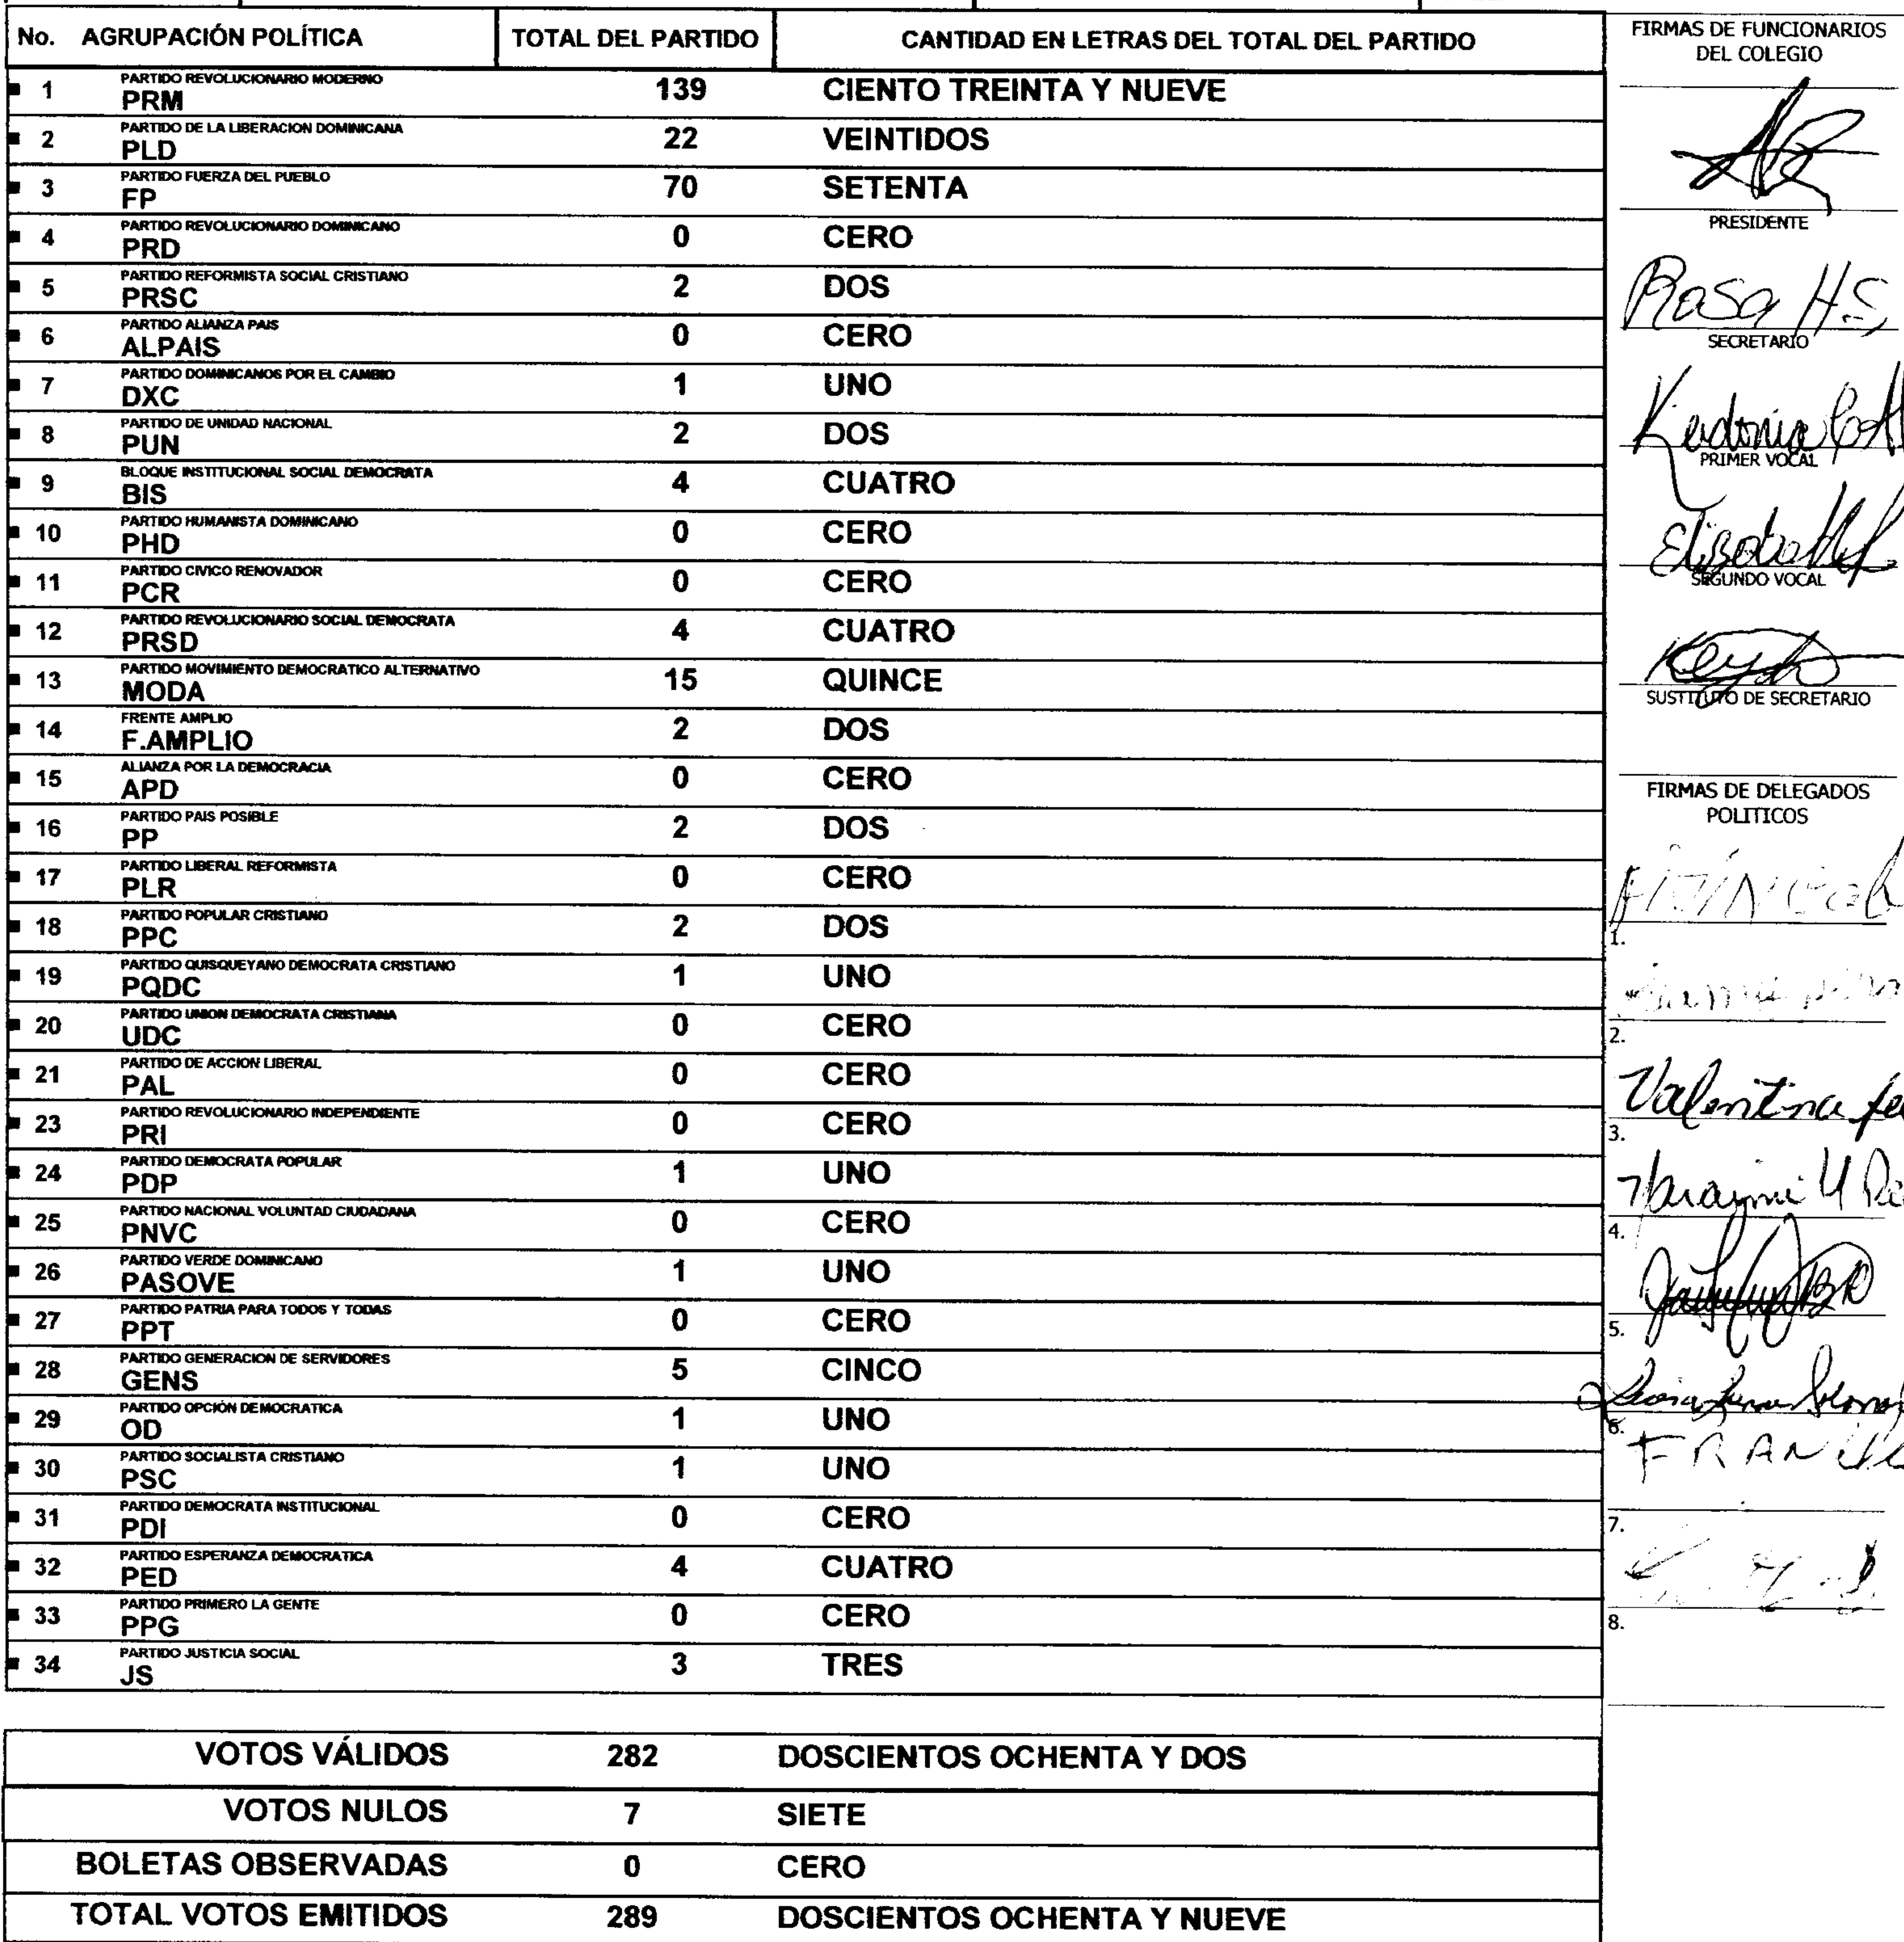 No. AGRUPACIÓN POLÍTICA TOTAL DEL PARTIDO CANTIDAD EN LETRAS DEL TOTAL DEL PARTIDO
PARTIDO REVOLUCIONARIO MODERNO
1 PRM 139 CIENTO TREINTA Y NUEVE
PARTIDO DE LA LIBERACION DOMINICANA
2 PLD 22 VEINTIDOS
PARTIDO FUERZA DEL PUEBLO
3 FP 70 SETENTA
PARTIDO REVOLUCIONARIO DOMINICANO
4 PRD 0 CERO
PARTIDO REFORMISTA SOCIAL CRISTIANO
5 PRSC 2 DOS
PARTIDO ALIANZA PAIS
6 ALPAIS 0 CERO
PARTIDO DOMINICANOS POR EL CAMBIO
7 DXC 1 UNO
PARTIDO DE UNIDAD NACIONAL
8 PUN 2 DOS
BLOQUE INSTITUCIONAL SOCIAL DEMOCRATA
9 BIS 4 CUATRO
PARTIDO HUMANISTA DOMINICANO
10 PHD 0 CERO
PARTIDO CIVICO RENOVADOR
11 PCR 0 CERO
PARTIDO REVOLUCIONARIO SOCIAL DEMOCRATA
12 PRSD 4 CUATRO
PARTIDO MOVIMIENTO DEMOCRATICO ALTERNATIVO
13 MODA 15 QUINCE
FRENTE AMPLIO
14 F.AMPLIO 2 DOS
ALIANZA POR LA DEMOCRACIA
15 APD 0 CERO
PARTIDO PAIS POSIBLE
16 PP 2 DOS
PARTIDO LIBERAL REFORMISTA
17 PLR 0 CERO
PARTIDO POPULAR CRISTIANO
18 PPC 2 DOS
PARTIDO QUISQUEYANO DEMOCRATA CRISTIANO
19 PQDC 1 UNO
PARTIDO UNION DEMOCRATA CRISTIANA
20 UDC 0 CERO
PARTIDO DE ACCION LIBERAL
21 PAL 0 CERO
PARTIDO REVOLUCIONARIO INDEPENDIENTE
23 PRI 0 CERO
PARTIDO DEMOCRATA POPULAR
24 PDP 1 UNO
PARTIDO NACIONAL VOLUNTAD CIUDADANA
25 PNVC 0 CERO
PARTIDO VERDE DOMINICANO
26 PASOVE 1 UNO
PARTIDO PATRIA PARA TODOS Y TODAS
27 PPT 0 CERO
PARTIDO GENERACION DE SERVIDORES
28 GENS 5 CINCO
PARTIDO OPCIÓN DEMOCRATICA
29 OD 1 UNO
PARTIDO SOCIALISTA CRISTIANO
30 PSC 1 UNO
PARTIDO DEMOCRATA INSTITUCIONAL
31 PDI 0 CERO
PARTIDO ESPERANZA DEMOCRATICA
32 PED 4 CUATRO
PARTIDO PRIMERO LA GENTE
33 PPG 0 CERO
PARTIDO JUSTICIA SOCIAL
34 JS 3 TRES
VOTOS VÁLIDOS 282 DOSCIENTOS OCHENTA Y DOS
VOTOS NULOS 7 SIETE
BOLETAS OBSERVADAS 0 CERO
TOTAL VOTOS EMITIDOS 289 DOSCIENTOS OCHENTA Y NUEVE
FIRMAS DE FUNCIONARIOS
DEL COLEGIO
PRESIDENTE
Rosa H.S,
SECRETARIO
PRIMER VOCAL
SEGUNDO VOCAL
SUSTITUTO DE SECRETARIO
FIRMAS DE DELEGADOS
POLITICOS
1.
2.
Valentina
3.
4.
5.
6.
7.
8.